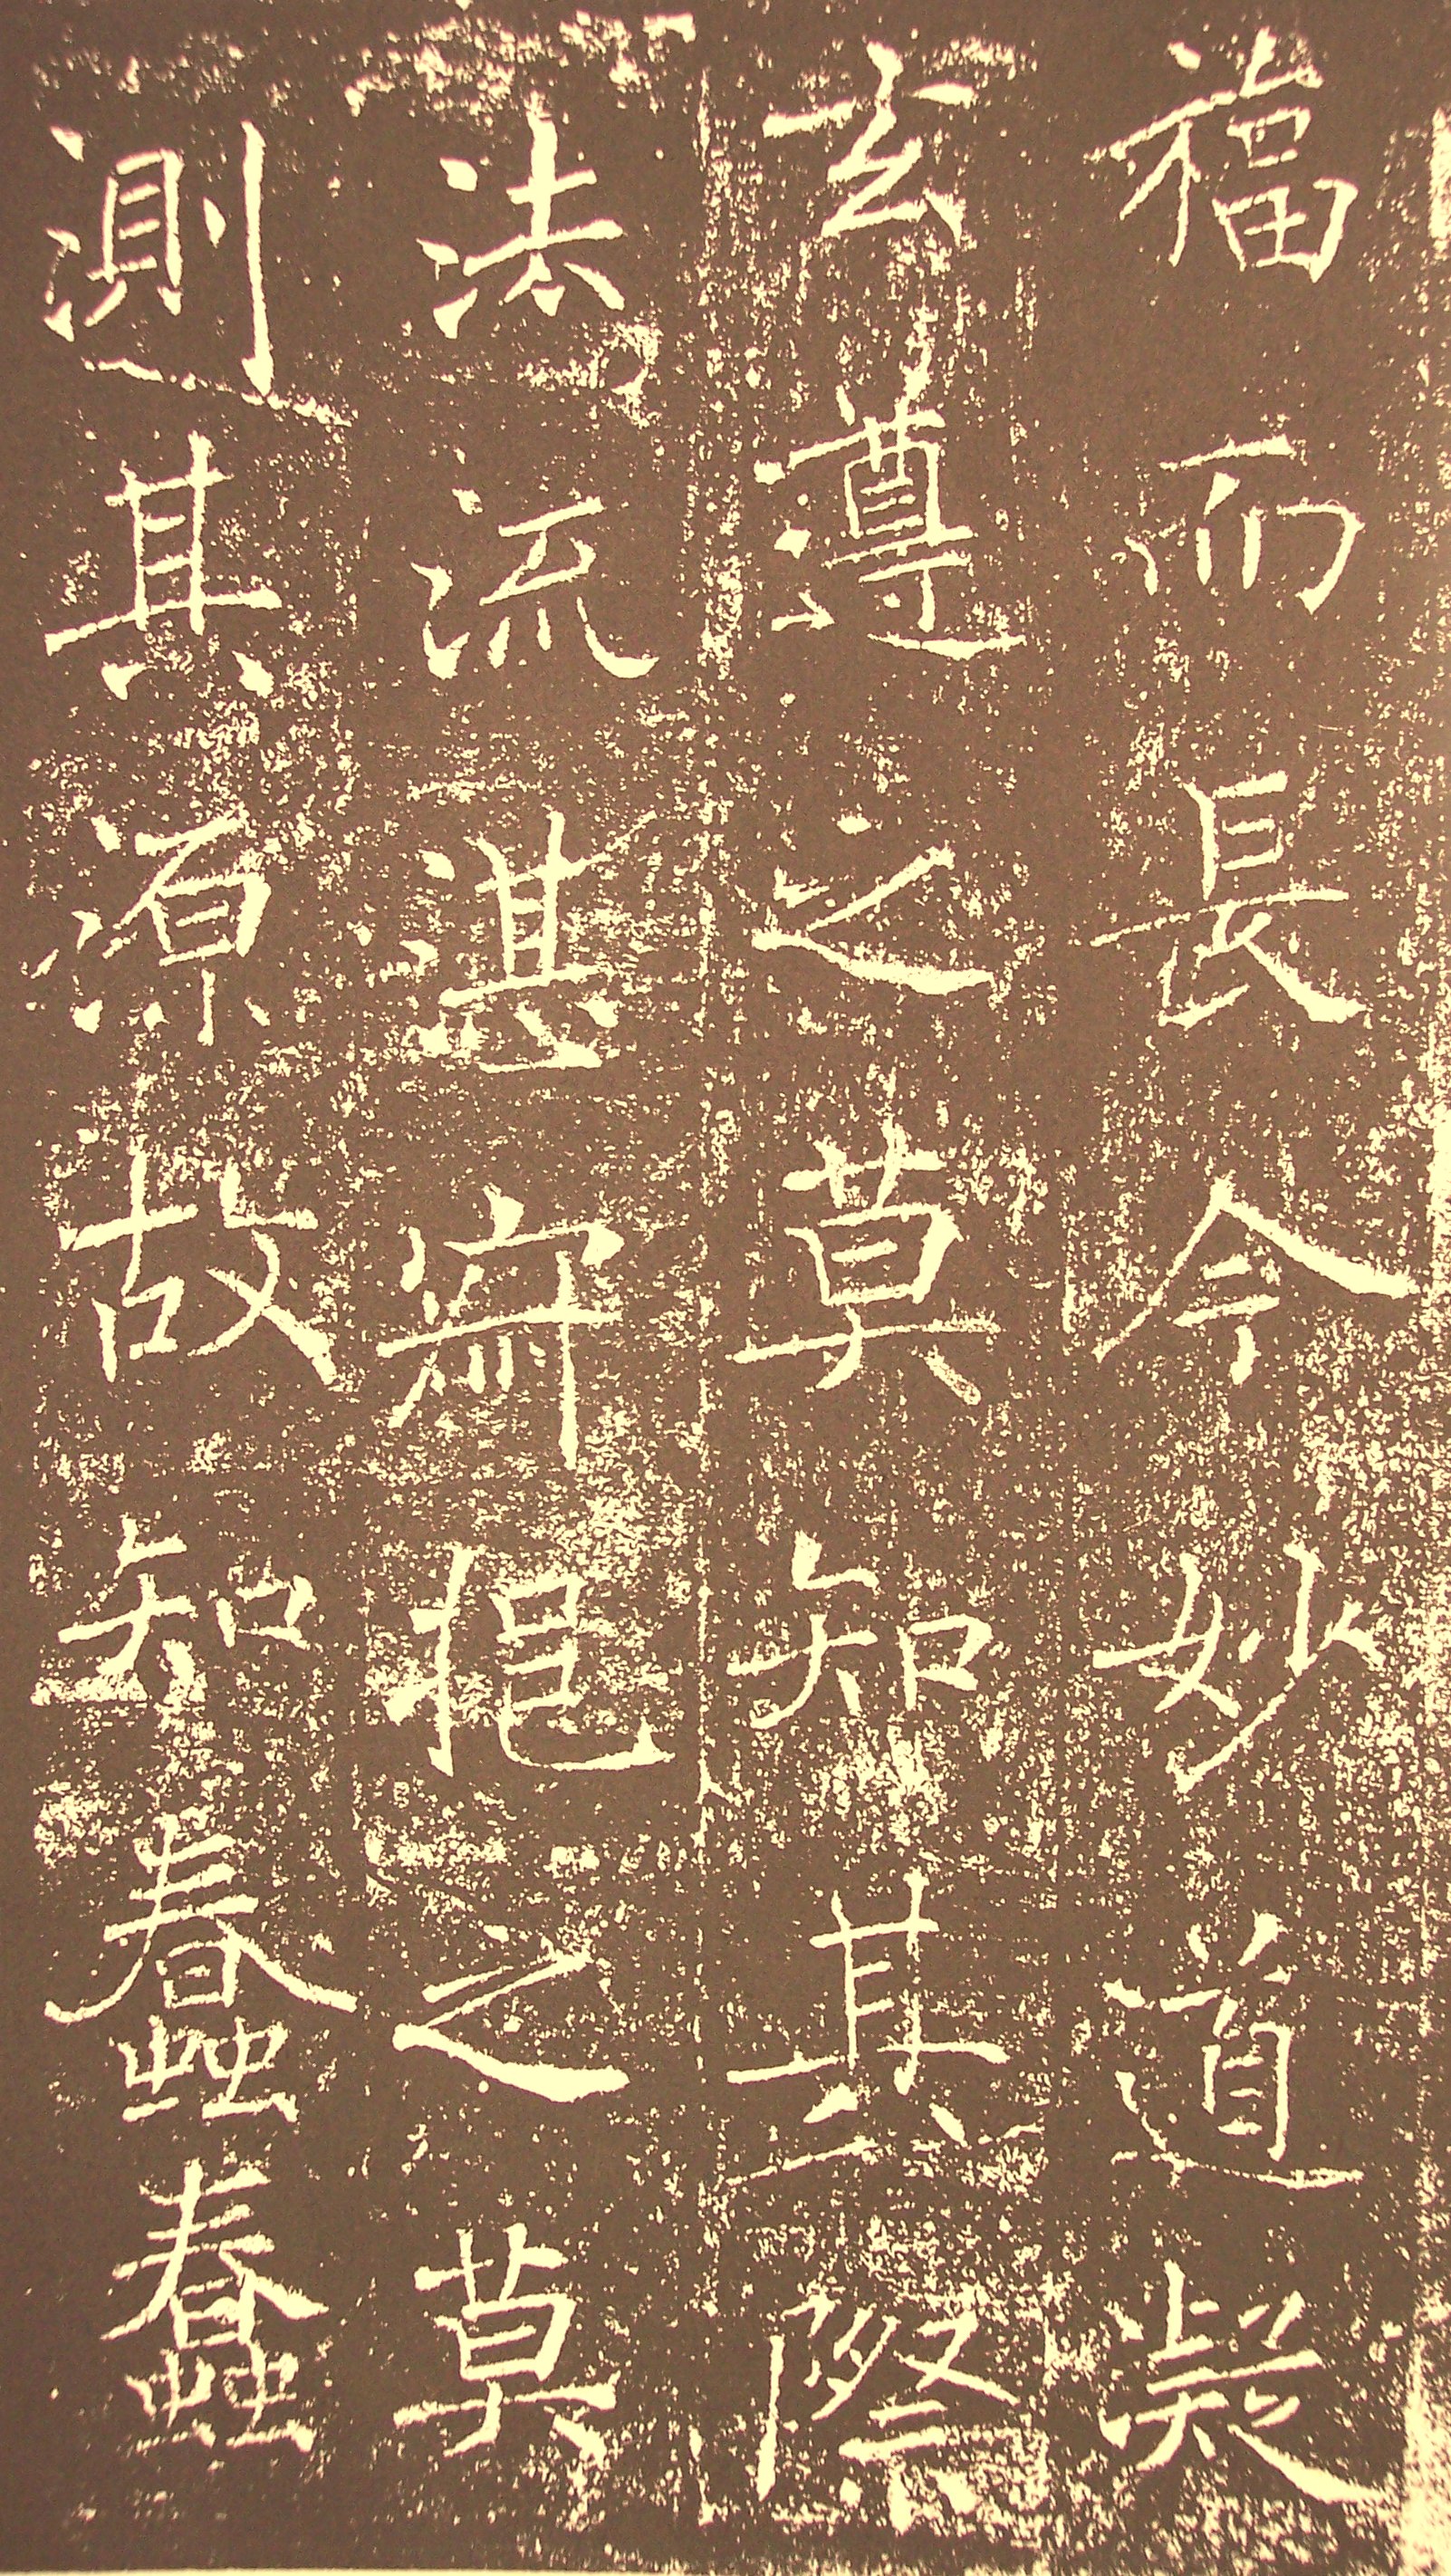 福而長今妙道凝
玄遵之莫知其際
法流湛寂挹之莫
測其源故知蠢蠢